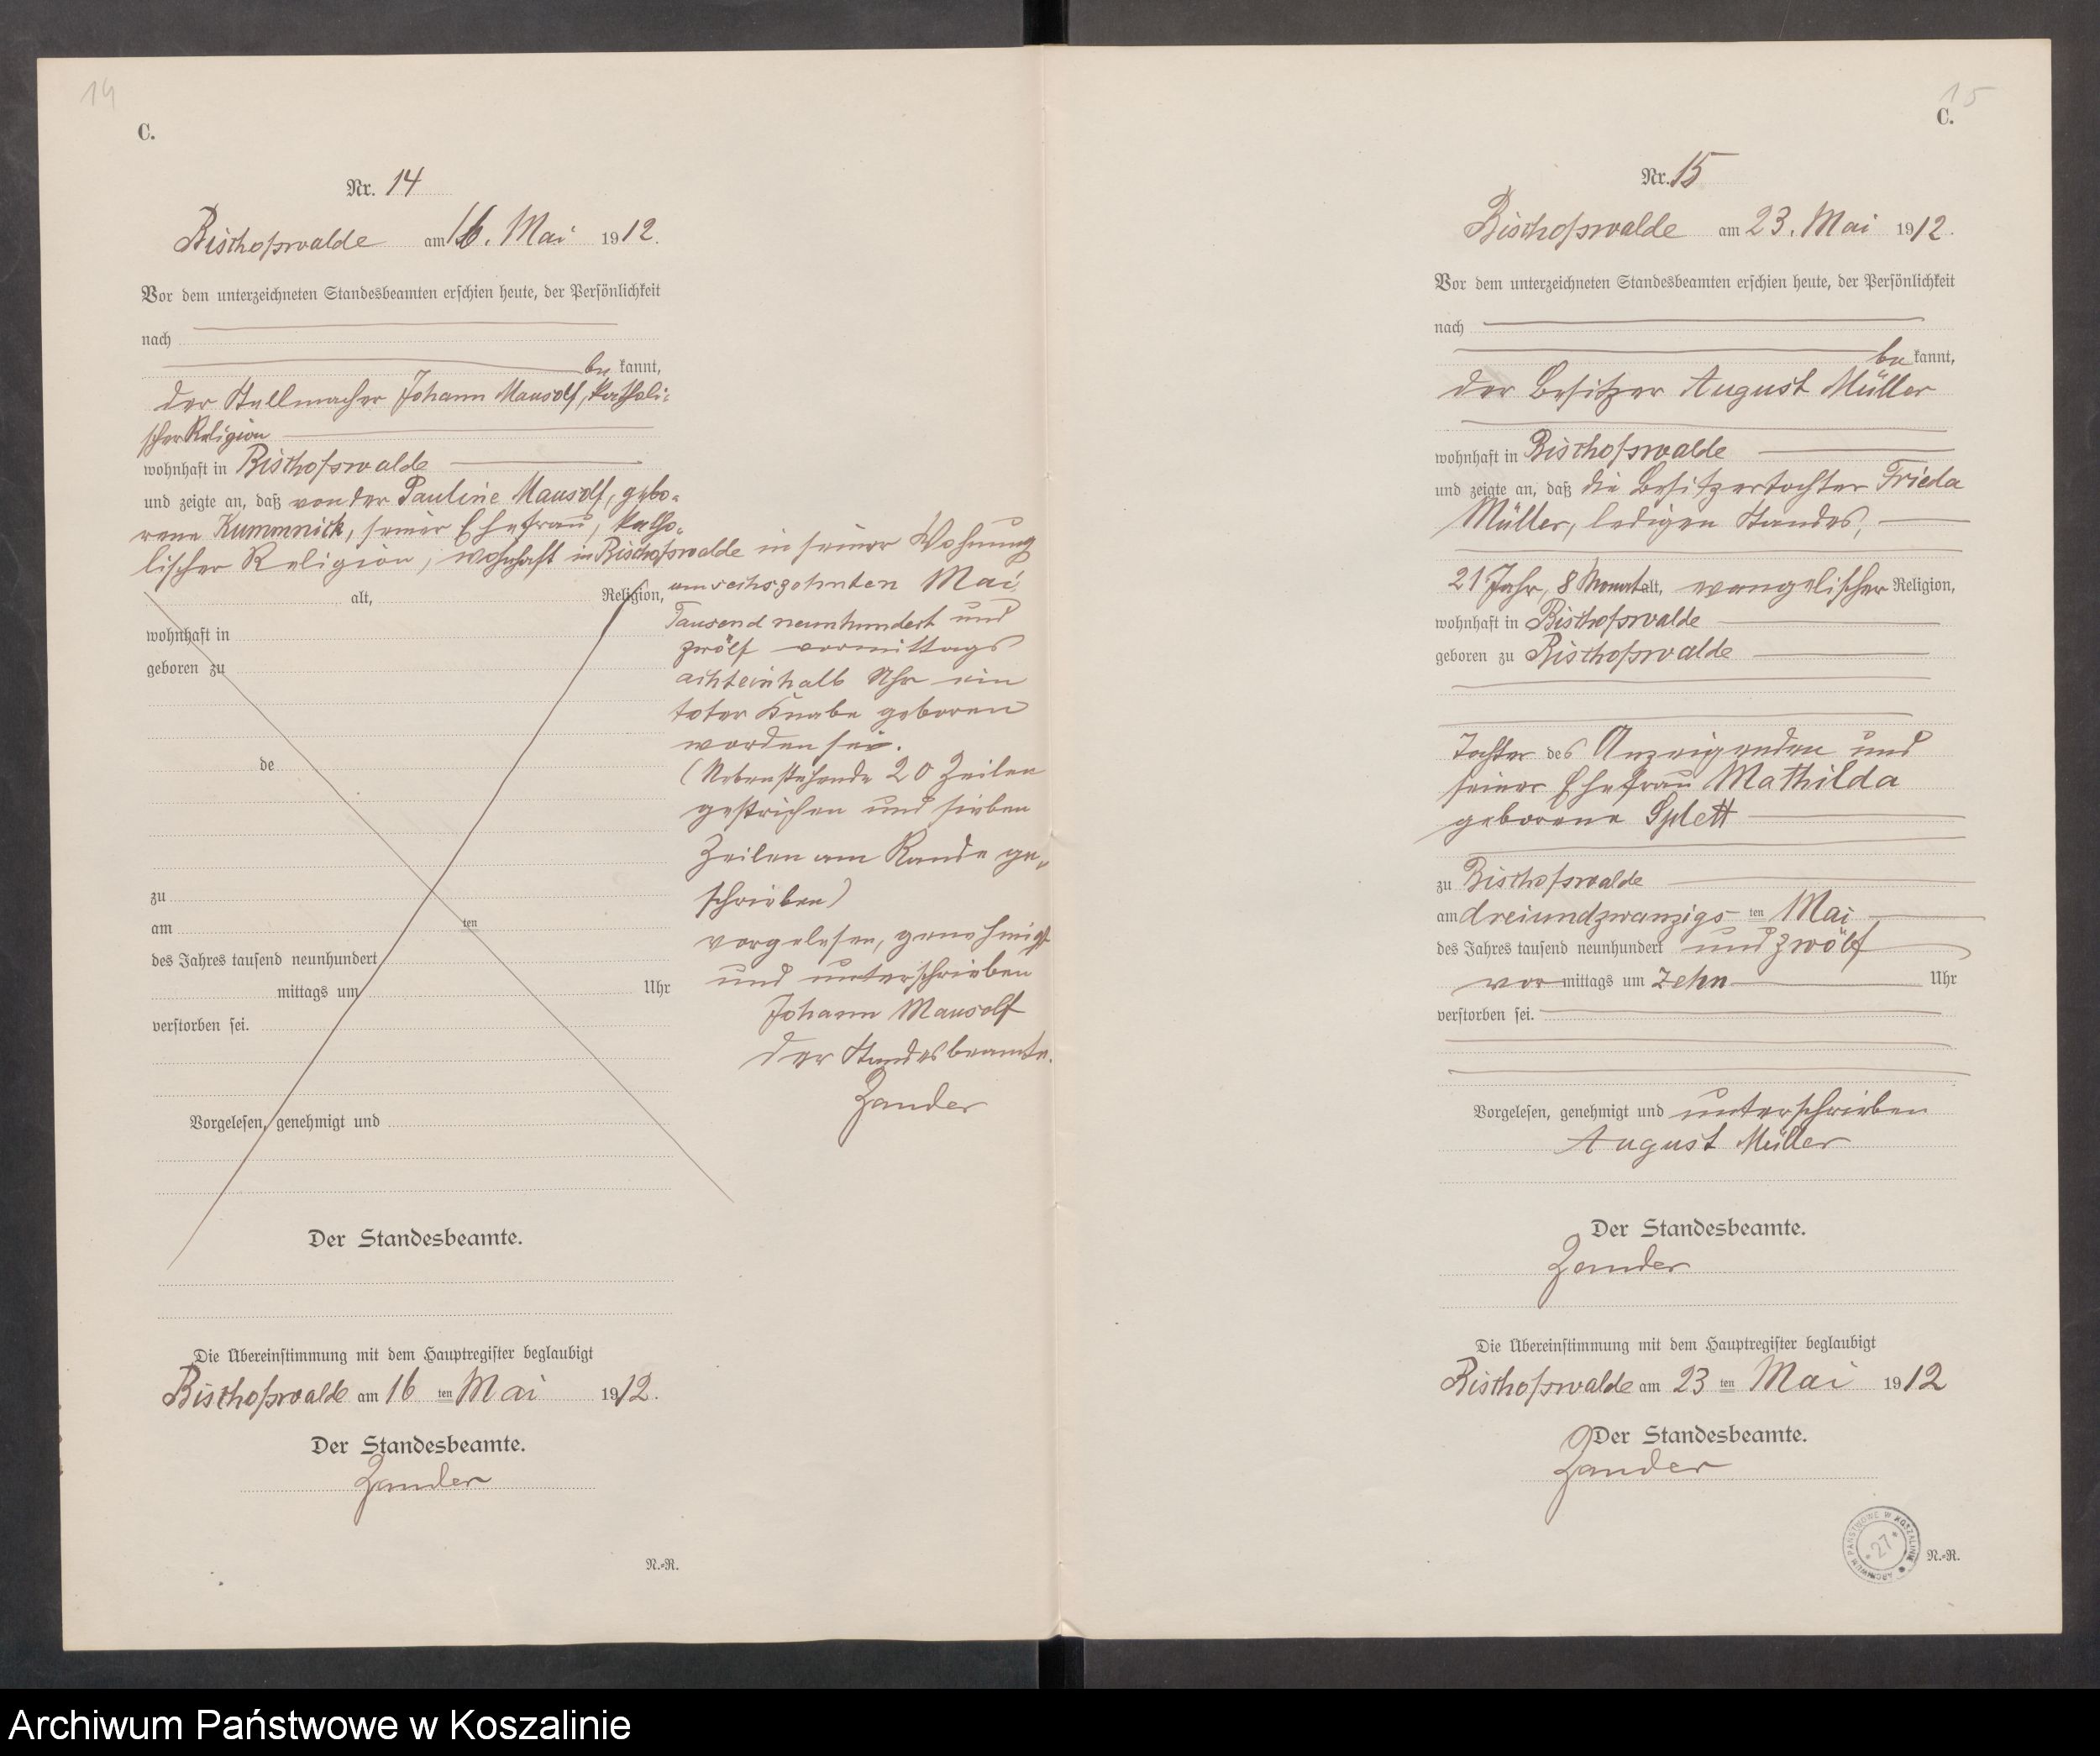 14
C.
Nr. 14
Bischofswalde am 16. Mai 1912.
Vor dem unterzeichneten Standesbeamten erschien heute, der Persönlichkeit
nach
be kannt,
der Stellmacher Johann Mausolf, katholi-
scher Religion
wohnhaft in Bischofswalde
und zeigte an, daß von der Pauline Mausolf, gebo-
rene Kummnick, seiner Ehefrau, katho-
lischer Religion, wohnhaft in Bischofswalde in seiner Wohnung
alt, Religion,
am sechszehnten Mai
Tausend neunhundert und
zwölf vormittags
achteinhalb Uhr ein
toter Knabe geboren
worden sei.
(Nebenstehende 20 Zeilen
gestrichen und sieben
Zeilen am Rande ge-
schrieben)
vorgelesen, genehmigt
und unterschrieben
Johann Mausolf
der Standesbeamte.
Zander
wohnhaft in
geboren zu
de
zu
am ten
des Jahres tausend neunhundert
mittags um Uhr
verstorben sei.
Vorgelesen, genehmigt und
Der Standesbeamte.
Die Übereinstimmung mit dem Hauptregister beglaubigt
Bischofswalde am 16 ten Mai 1912.
Der Standesbeamte.
Zander
N.-R.
15
C.
Nr. 15
Bischofswalde am 23. Mai 1912.
Vor dem unterzeichneten Standesbeamten erschien heute, der Persönlichkeit
nach
be kannt,
der Besitzer August Müller
wohnhaft in Bischofswalde
und zeigte an, daß die Besitzertochter Frieda
Müller, ledigen Standes,
21 Jahr, 8 Monat alt, evangelischer Religion,
wohnhaft in Bischofswalde
geboren zu Bischofswalde
Tochter des Anzeigenden und
seiner Ehefrau Mathilda
geborene Splett
zu Bischofswalde
am dreiundzwanzigs ten Mai
des Jahres tausend neunhundert und zwölf
vor mittags um zehn Uhr
verstorben sei.
Vorgelesen, genehmigt und unterschrieben
August Müller
Der Standesbeamte.
Zander
Die Übereinstimmung mit dem Hauptregister beglaubigt
Bischofswalde am 23 ten Mai 1912
Der Standesbeamte.
Zander
ARCHIWUM PAŃSTWOWE W KOSZALINIE
27
N.-R.
Archiwum Państwowe w Koszalinie